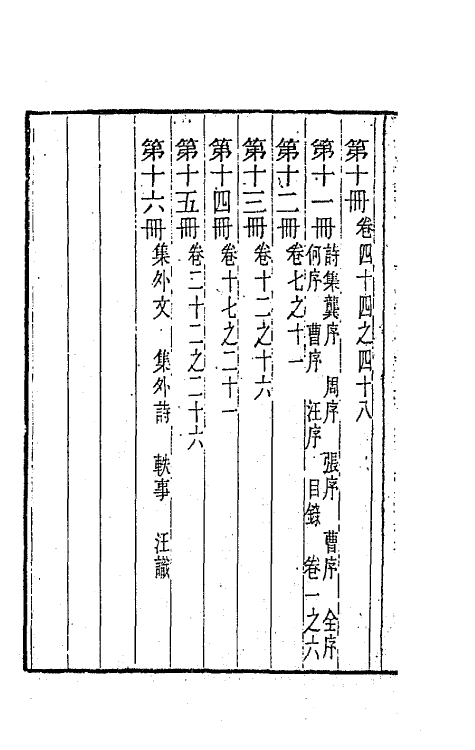 第十冊 卷四十四之四十八
第十一冊 詩集龔序 周序 張序 曹序 全序
何序 曹序 汪序 目錄 卷一之六
第十二冊 卷七之十一
第十三冊 卷十二之十六
第十四冊 卷十七之二十一
第十五冊 卷二十二之二十六
第十六冊 集外文 集外詩 軼事 汪識